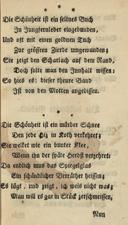 Die Schönheit ist ein seltnes Buch
In Jungfernleder eingebunden,
Und oft mit einem goldnen Tuch
Zur größren Zierde umgewunden;
Sie zeigt den Schattisch auf dem Rand,
Doch sollte man den Innhalt wissen:
So hieß es: dieser theure Band
Ist von den Motten angebissen.
Die Schönheit ist ein mürber Schnee
Den jede Hitz in Koth verkehret;
Sie welket wie ein bunter Klee,
Wenn ihn der späte Herbst verzehret:
Da endlich muß das Spiegelglas
Ein schändlicher Verräther heissen;
Es lügt, und zeigt, ich weis nicht was;
Man will es gar in Stücke zerschmeissen,
Nun